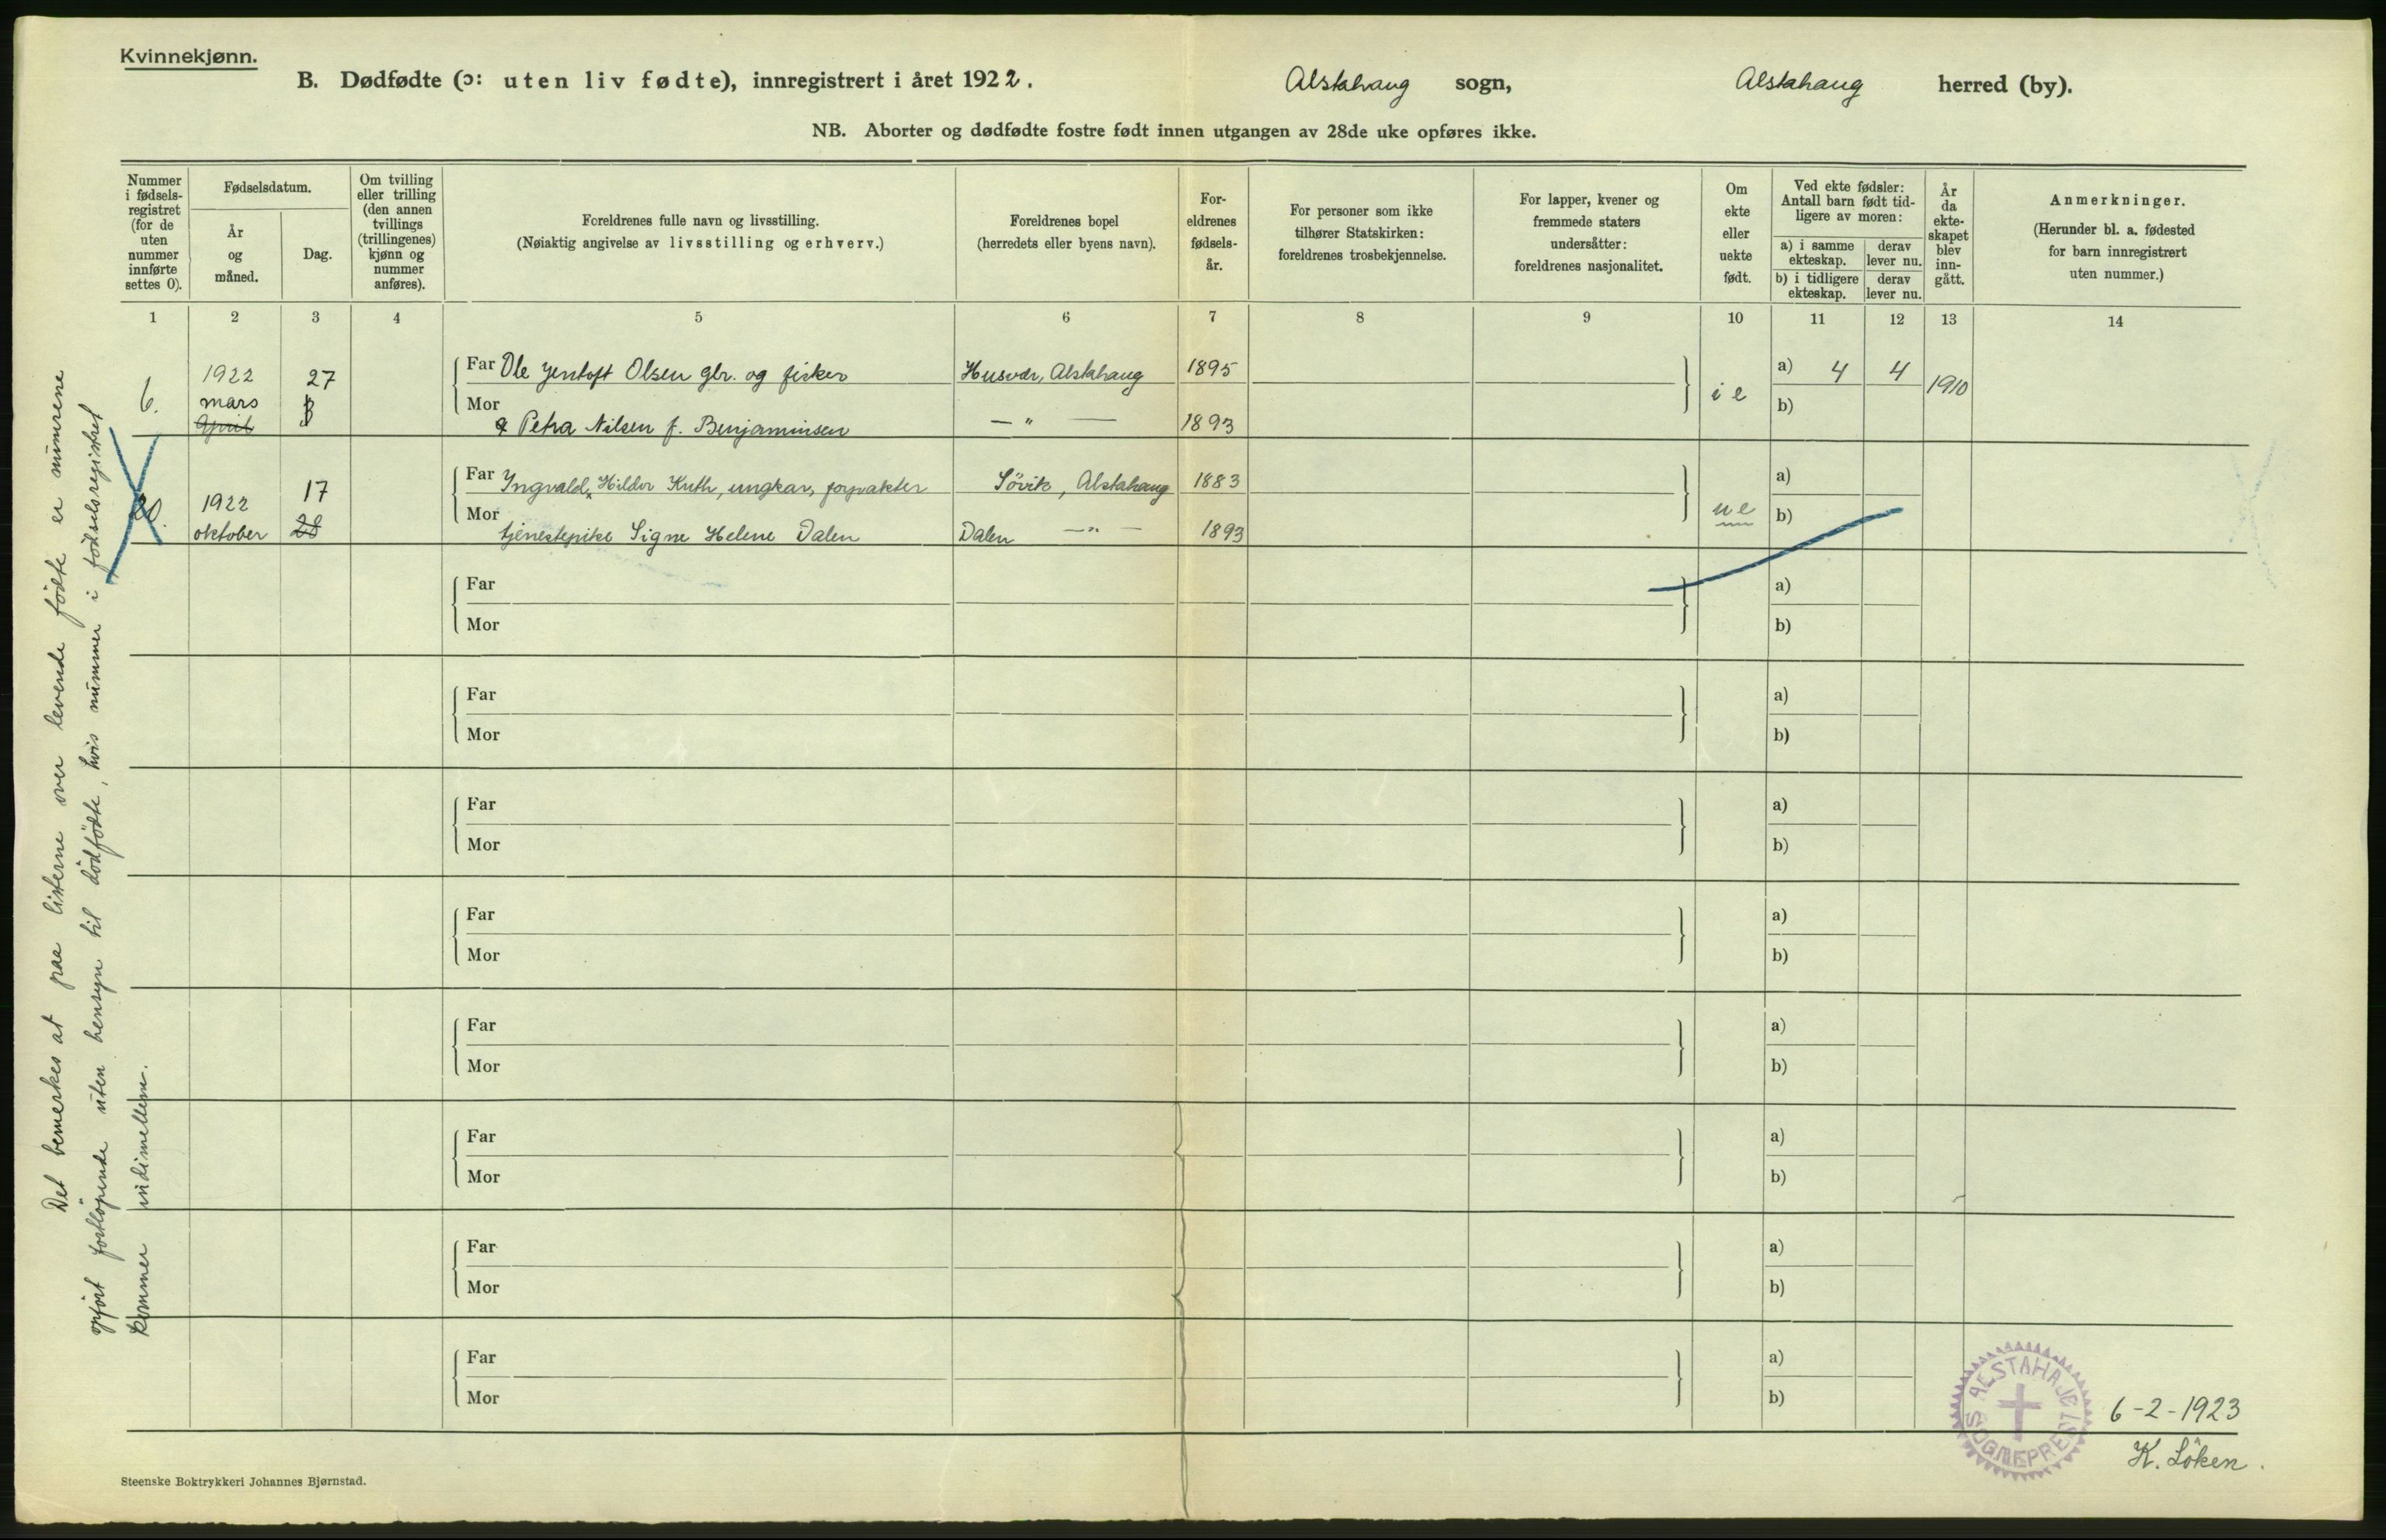 Kvinnekjønn.
B. Dødfødte (ɔ: uten liv fødte), innregistrert i året 1922. Alstahaug sogn, Alstahaug herred (by).
NB. Aborter og dødfødte fostre født innen utgangen av 28de uke opføres ikke.
Nummer i fødsels-registret (for de uten nummer innførte settes 0).
Fødselsdatum.
År og måned.
Dag.
Om tvilling eller trilling (den annen tvillings (trillingenes) kjønn og nummer anføres).
Foreldrenes fulle navn og livsstilling.
(Nøiaktig angivelse av livsstilling og erhverv.)
Foreldrenes bopel
(herredets eller byens navn).
For-eldrenes fødsels-år.
For personer som ikke tilhører Statskirken: foreldrenes trosbekjennelse.
For lapper, kvener og fremmede staters undersåtter: foreldrenes nasjonalitet.
Om ekte eller uekte født.
Ved ekte fødsler: Antall barn født tid-ligere av moren:
a) i samme ekteskap.
derav lever nu.
b) i tidligere ekteskap.
derav lever nu.
År da ekte-skapet blev inn-gått.
Anmerkninger.
(Herunder bl. a. fødested for barn innregistrert uten nummer.)
1 2 3 4 5 6 7 8 9 10 11 12 13 14
6. 1922 mars April 27
Far Ole Jentoft Olsen gbr. og fisker Husvær, Alstahaug 1895
i e a) 4 4 1910
Mor Petra Nilsen f. Benjaminsen — " — 1893
b)
20. 1922 oktober 17 28
Far Ingvald Hildor Kuth, ungkar, forpakter Søvik, Alstahaug 1883
u e a)
Mor tjenestepike Signe Helene Dalen Dalen — " — 1893
b)
Far a)
Mor b)
Far a)
Mor b)
Far a)
Mor b)
Far a)
Mor b)
Far a)
Mor b)
Far a)
Mor b)
Far a)
Mor b)
Far a)
Mor b)
Det bemerkes at paa listerne over levende fødte er numerene
opført fortløpende uten hensyn til dødfødte, hvis nummer i fødselsregistret
kommer indimellem.
ALSTAHAUG SOGNEPREST
6-2-1923
K. Løken.
Steenske Boktrykkeri Johannes Bjørnstad.